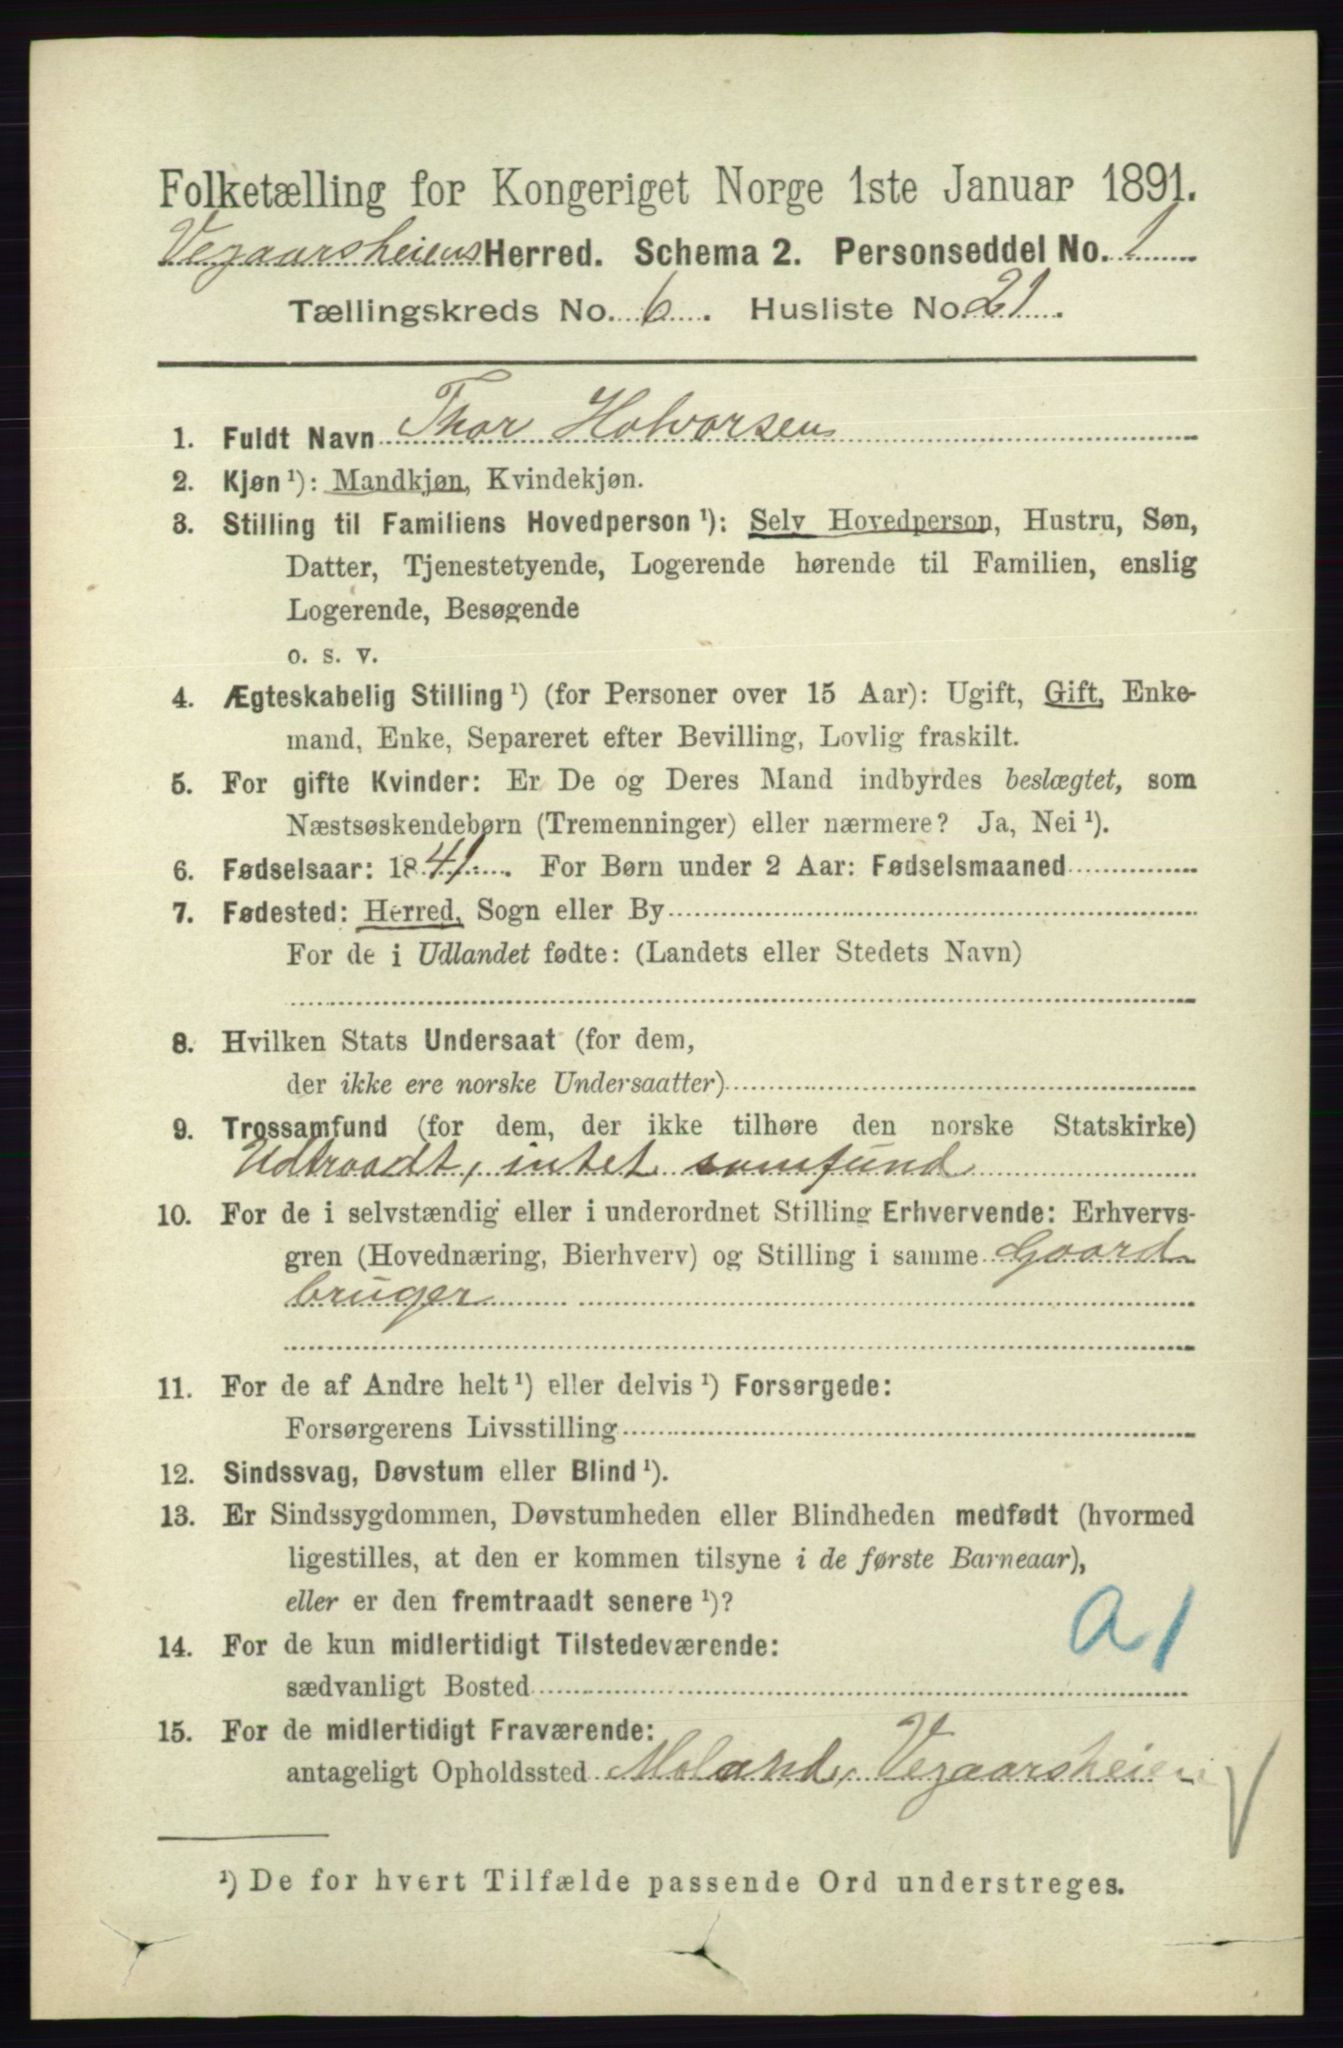 Folketælling for Kongeriget Norge 1ste Januar 1891.
Vegaarsheiens Herred. Schema 2. Personseddel No. 1
Tællingskreds No. 6. Husliste No. 21.
1. Fuldt Navn Thor Halvorsen
2. Kjøn ¹): Mandkjøn, Kvindekjøn.
3. Stilling til Familiens Hovedperson ¹): Selv Hovedperson, Hustru, Søn,
Datter, Tjenestetyende, Logerende hørende til Familien, enslig
Logerende, Besøgende
o. s. v.
4. Ægteskabelig Stilling ¹) (for Personer over 15 Aar): Ugift, Gift, Enke-
mand, Enke, Separeret efter Bevilling, Lovlig fraskilt.
5. For gifte Kvinder: Er De og Deres Mand indbyrdes beslægtet, som
Næstsøskendebørn (Tremenninger) eller nærmere? Ja, Nei ¹).
6. Fødselsaar: 1841. For Børn under 2 Aar: Fødselsmaaned
7. Fødested: Herred, Sogn eller By
For de i Udlandet fødte: (Landets eller Stedets Navn)
8. Hvilken Stats Undersaat (for dem,
der ikke ere norske Undersaatter)
9. Trossamfund (for dem, der ikke tilhøre den norske Statskirke)
Udtraadt, intet samfund
10. For de i selvstændig eller i underordnet Stilling Erhvervende: Erhvervs-
gren (Hovednæring, Bierhverv) og Stilling i samme Gaard
bruger
11. For de af Andre helt ¹) eller delvis ¹) Forsørgede:
Forsørgerens Livsstilling
12. Sindssvag, Døvstum eller Blind ¹).
13. Er Sindssygdommen, Døvstumheden eller Blindheden medfødt (hvormed
ligestilles, at den er kommen tilsyne i de første Barneaar),
eller er den fremtraadt senere ¹)?
a 1
14. For de kun midlertidigt Tilstedeværende:
sædvanligt Bosted
15. For de midlertidigt Fraværende:
antageligt Opholdssted Moland, Vegaarsheien
¹) De for hvert Tilfælde passende Ord understreges.